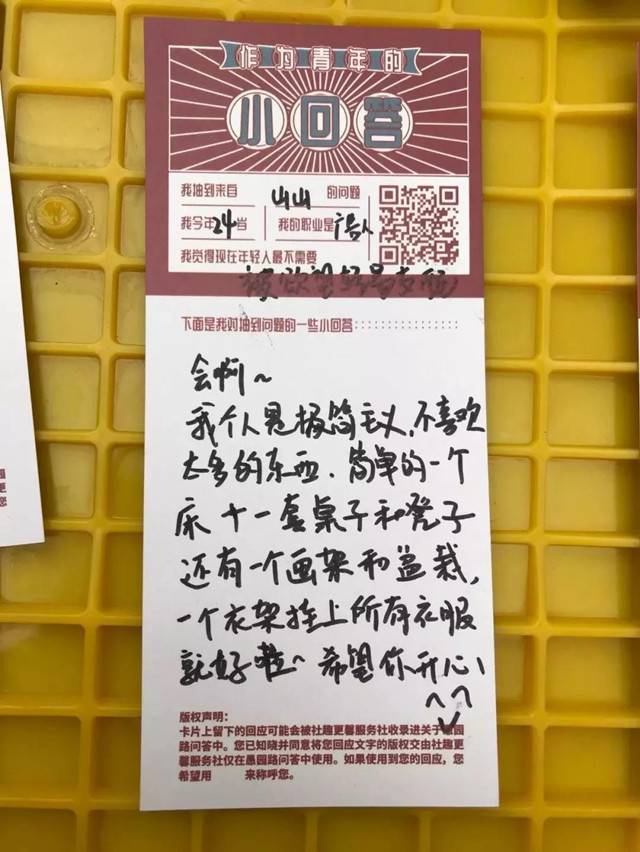 作为青年的
小回答
我抽到来自 山山 的问题
我今年24岁 我的职业是广告人
我觉得现在年轻人最不需要
被欲望
下面是我对抽到问题的一些小回答:
会啊~
我个人是极简主义,不喜欢
太多的东西.简单的一个
床 十一套桌子和凳子
还有一个画架和盆栽,
一个衣架挂上所有衣服
就好啦~ 希望你开心、
^ ^
版权声明:
卡片上留下的回应可能会被社趣更馨服务社收录进关于愚园
路问答中。您已知晓并同意将您回应文字的版权交由社趣更
馨服务社仅在愚园路问答中使用。如果使用到您的回应,您
希望用 来称呼您。